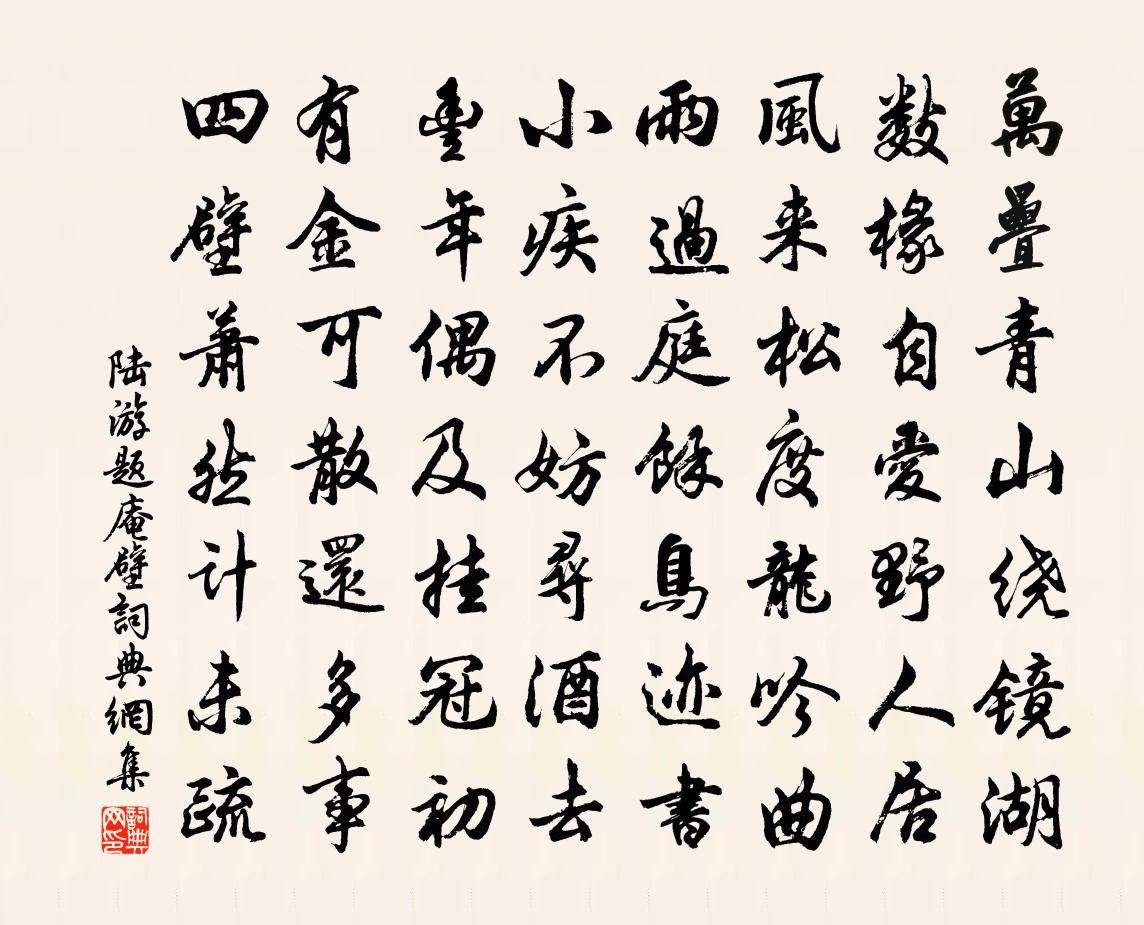 萬疊青山绕镜湖
数椽自愛野人居
風来松度龍吟曲
雨過庭餘鳥迹書
小疾不妨尋酒去
豊年偶及挂冠初
有金可散還多事
四壁蕭然计未疏
陆游题庵壁詞典網集
詞典网印